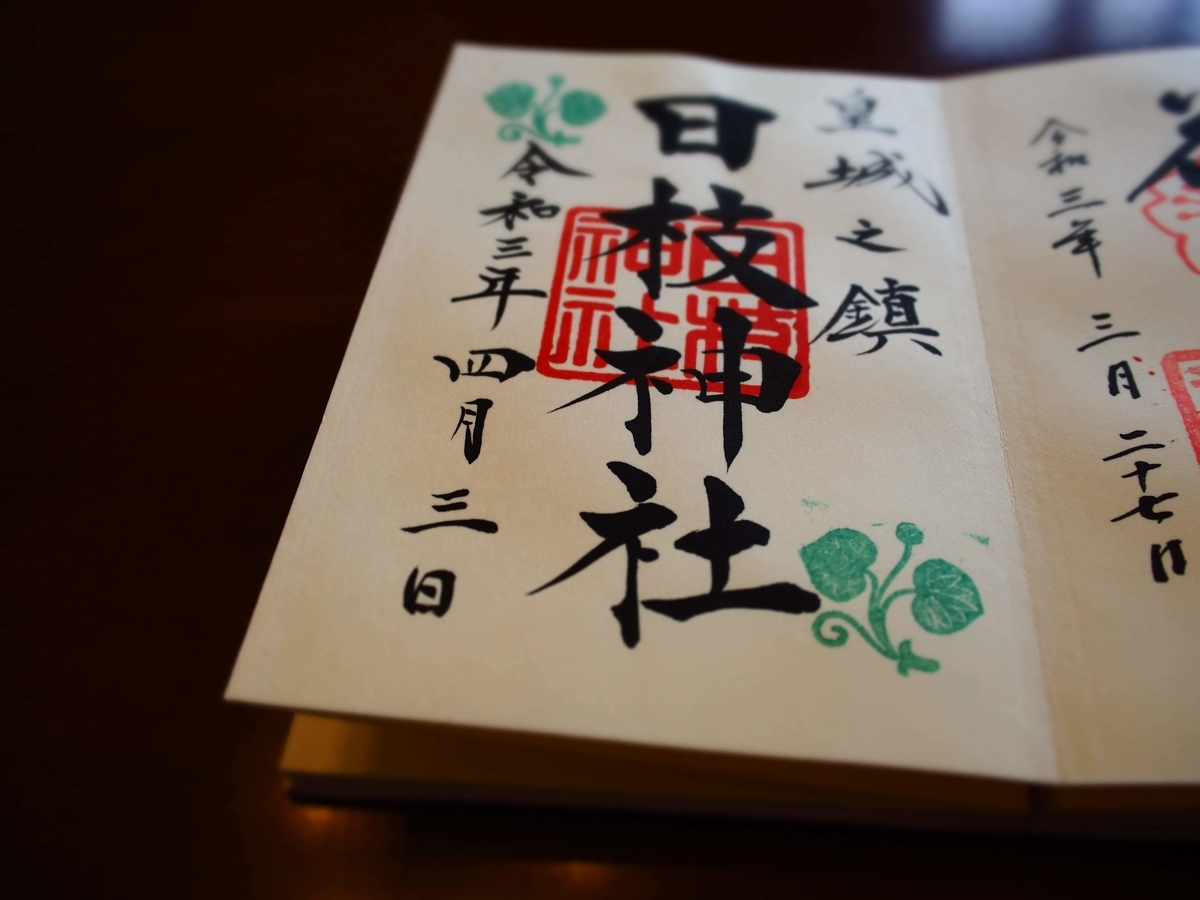 令和三年 三月 二十七日
皇城之鎮
日枝神社
日枝神社
令和三年 四月 三日